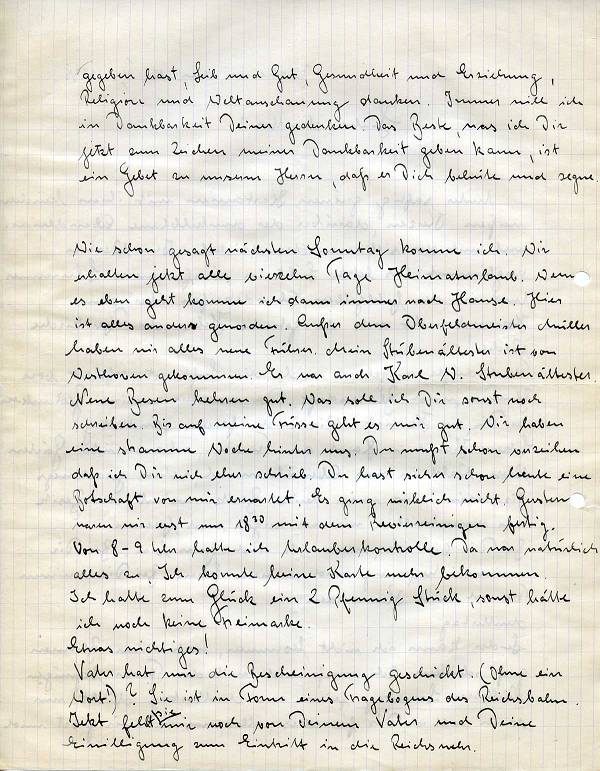 gegeben hast, Leib und Gut, Gesundheit und Erziehung,
Religion und Weltanschauung danken. Immer will ich
in Dankbarkeit Deiner gedenken. Das Beste, was ich Dir
jetzt zum Zeichen meiner Dankbarkeit geben kann, ist
ein Gebet zu unserm Herrn, daß es Dich behüte und segne.
Wie schon gesagt nächsten Sonntag komme ich. Wir
erhalten jetzt alle vierzehn Tage Heimaturlaub. Wenn
es eben geht komme ich dann immer nach Hause. Hier
ist alles anders geworden. Außer dem Oberfeldmeister Müller
haben wir alles neue Führer. Mein Stubenältester ist von
Westhoven gekommen. Er war auch Karl W. Stubenältester.
Neue Besen kehren gut. Was soll ich Dir sonst noch
schreiben. Bis auf meine Füsse geht es mir gut. Wir haben
eine stramme Woche hinter uns. Du mußt schon verzeihen
daß ich Dir nich eher schrieb. Du hast sicher schon heute eine
Botschaft von mir erwartet. Es ging wirklich nicht. Gestern
waren wir erst um 18³⁰ mit dem Revierreinigen fertig.
Von 8-9 Uhr hatte ich Urlauberkontrolle. Da war natürlich
alles zu. Ich konnte keine Karte mehr bekommen.
Ich hatte zum Glück ein 2 Pfennig Stück, sonst hätte
ich noch keine Freimarke.
Etwas wichtiges!
Vater hat mir die Bescheinigung geschickt. (Ohne ein
Wort!)? Sie ist in Form eines Fragebogens der Reichsbahn.
Jetzt fehlt mir noch von Deinem Vater und Deine
Einwilligung zum Eintritt in die Reichswehr.